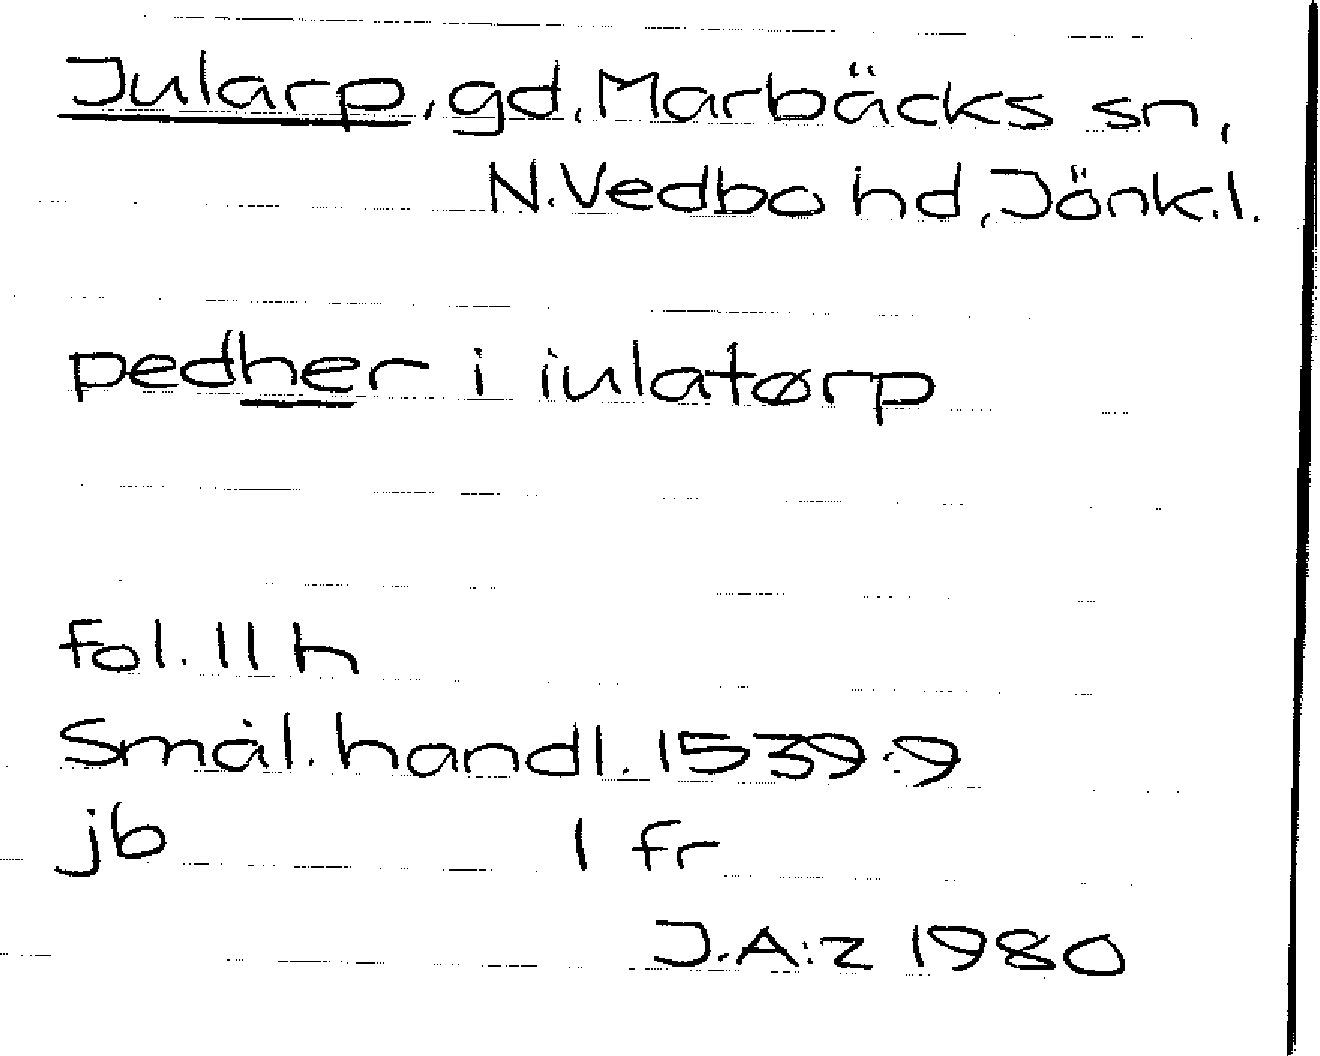 Jularp, gd, Marbäcks sn,
N. Vedbo hd, Jönk.l.
pedher i iulatørp
Fol. 11 h
Smål. handl. 1539:9
jb 1 fr
J.A:z 1980